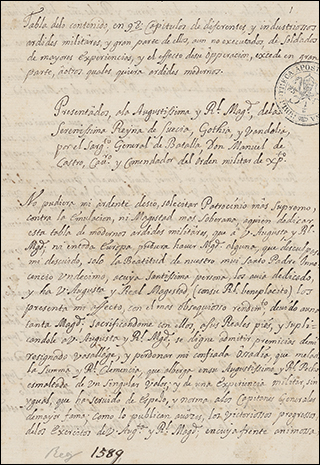 Tabla del contenido, en 92 Capitulos de diferentes y industriosos
ardides militares, y gran parte de ellos, aun no executados, de Soldados
de mayores Experiencias, y el effecto de su Operacion, excede en gran
parte, a otros quales quiera ardides modernos.
Presentados, ala Augustissima y Rl. Magd. dela
Serenissima Reyna de Suecia, Gothia, y Vandalia,
por el Sargto. General de Batalla Don Manuel de
Castro, Cavo. y Comendador del Orden militar de Xpo.
No pudiera mi ardente deseo, solicitar Patrocinio mas Supremo,
contra la Emulacion, ni Magestad mas Soberana, aquien dedicar
esta tabla de modernos ardides militares, que a V. Augusta y Rl.
Magd. ni en toda Europa pudiera haver Magd. alguna, que disculpe
mi descuido, solo la Beatitud de nuestro mui Santo Padre Inno-
cencio undecimo, a cuya Santissima persona los avia dedicado,
y ha V. Augusta y Real Magestad (con su Rl. beneplacito) los
presenta mi affecto, con el mas obsequioso rendimto. devido a una
tanta Magd. Sacrificandome con ellos, a sus Reales pies, y Supli-
candole a V. Augusta y Rl. Magd. se digne admitir premicias de mi
resignado Vasallage, y perdonar mi confiada Ossadia, que
la Summa y Rl. Clemencia, que en su Augustissimo y Rl. Pecho
esmaltado de un Singular Valor, y de una Experiencia militar, sin
ygual, que ha servido de Espejo, y norma alos Capitanes Generales
de mayor fama; como lo publican los victoriosos progressos
delos Exercitos de V. Augta. y Rl. Magd. en cuya frente animosa
Reg 1589